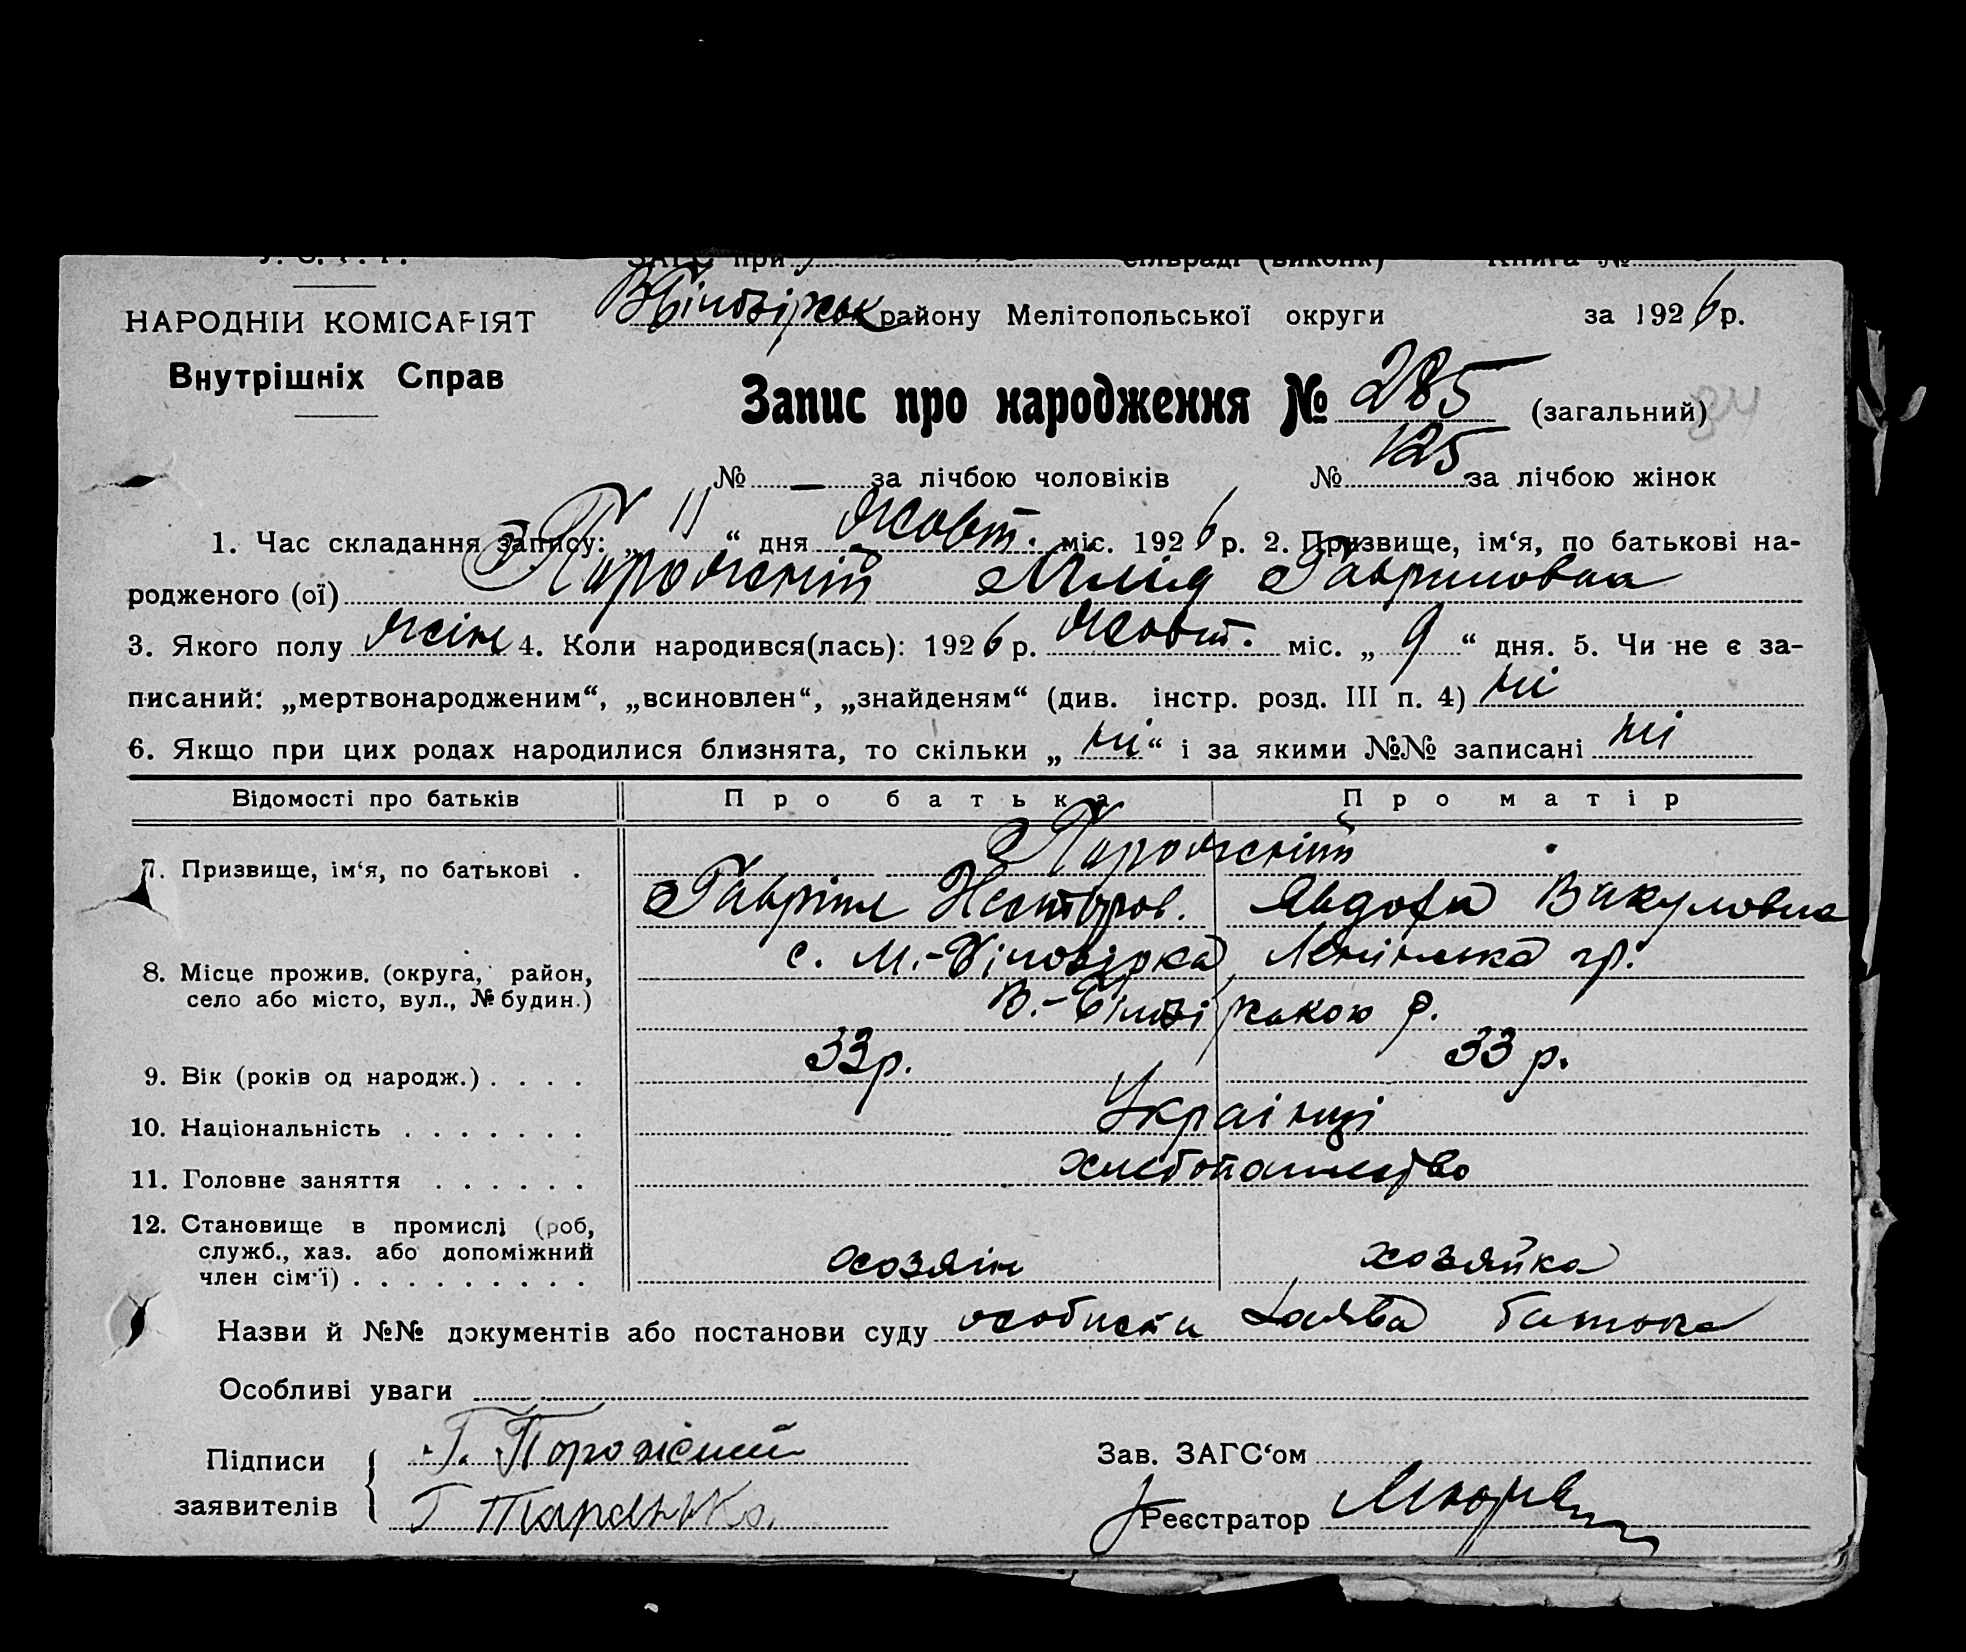 У. С. Р. Р.
ЗАГС при сільраді (виконк) Книга №
НАРОДНІЙ КОМІСАРІЯТ
Внутрішніх Справ
В Білозірськ району Мелітопольської округи за 1926 р.
Запис про народження № 285 (загальний) 34
№ — за лічбою чоловіків № 125 за лічбою жінок
1. Час складання запису: „ 11 “ дня жовт. міс. 1926 р. 2. Призвище, ім‘я, по батькові на-
родженого (ої) Порожній Лілід Гавриловна
3. Якого полу жін 4. Коли народився(лась): 1926 р. жовт. міс. „ 9 “ дня. 5. Чи не є за-
писаний: „мертвонародженим“, „всиновлен“, „знайденям“ (див. інстр. розд. III п. 4) ні
6. Якщо при цих родах народилися близнята, то скільки „ ні “ і за якими №№ записані ні
Відомості про батьків Про батька Про матір
7. Призвище, ім‘я, по батькові . Порожній
Гавріил Нестеров. Явдоха Вакуловна
8. Місце прожив. (округа, район,
село або місто, вул., № будин.)
с. М.-Білозірка, Ленінська гр.
В.-Білозірською р.
9. Вік (років од народж.) . . . . 33 р. 33 р.
10. Національність . . . . . . . Українці
11. Головне заняття . . . . . . хлебопашество
12. Становище в промислі (роб,
служб., хаз. або допоміжний
член сім‘ї) . . . . . . . . . хозяін хозяйка
Назви й №№ документів або постанови суду особиста заява батька
Особливі уваги
Підписи
заявителів
Г. Порожний
Г Таранька
Зав. ЗАГС‘ом
Реєстратор